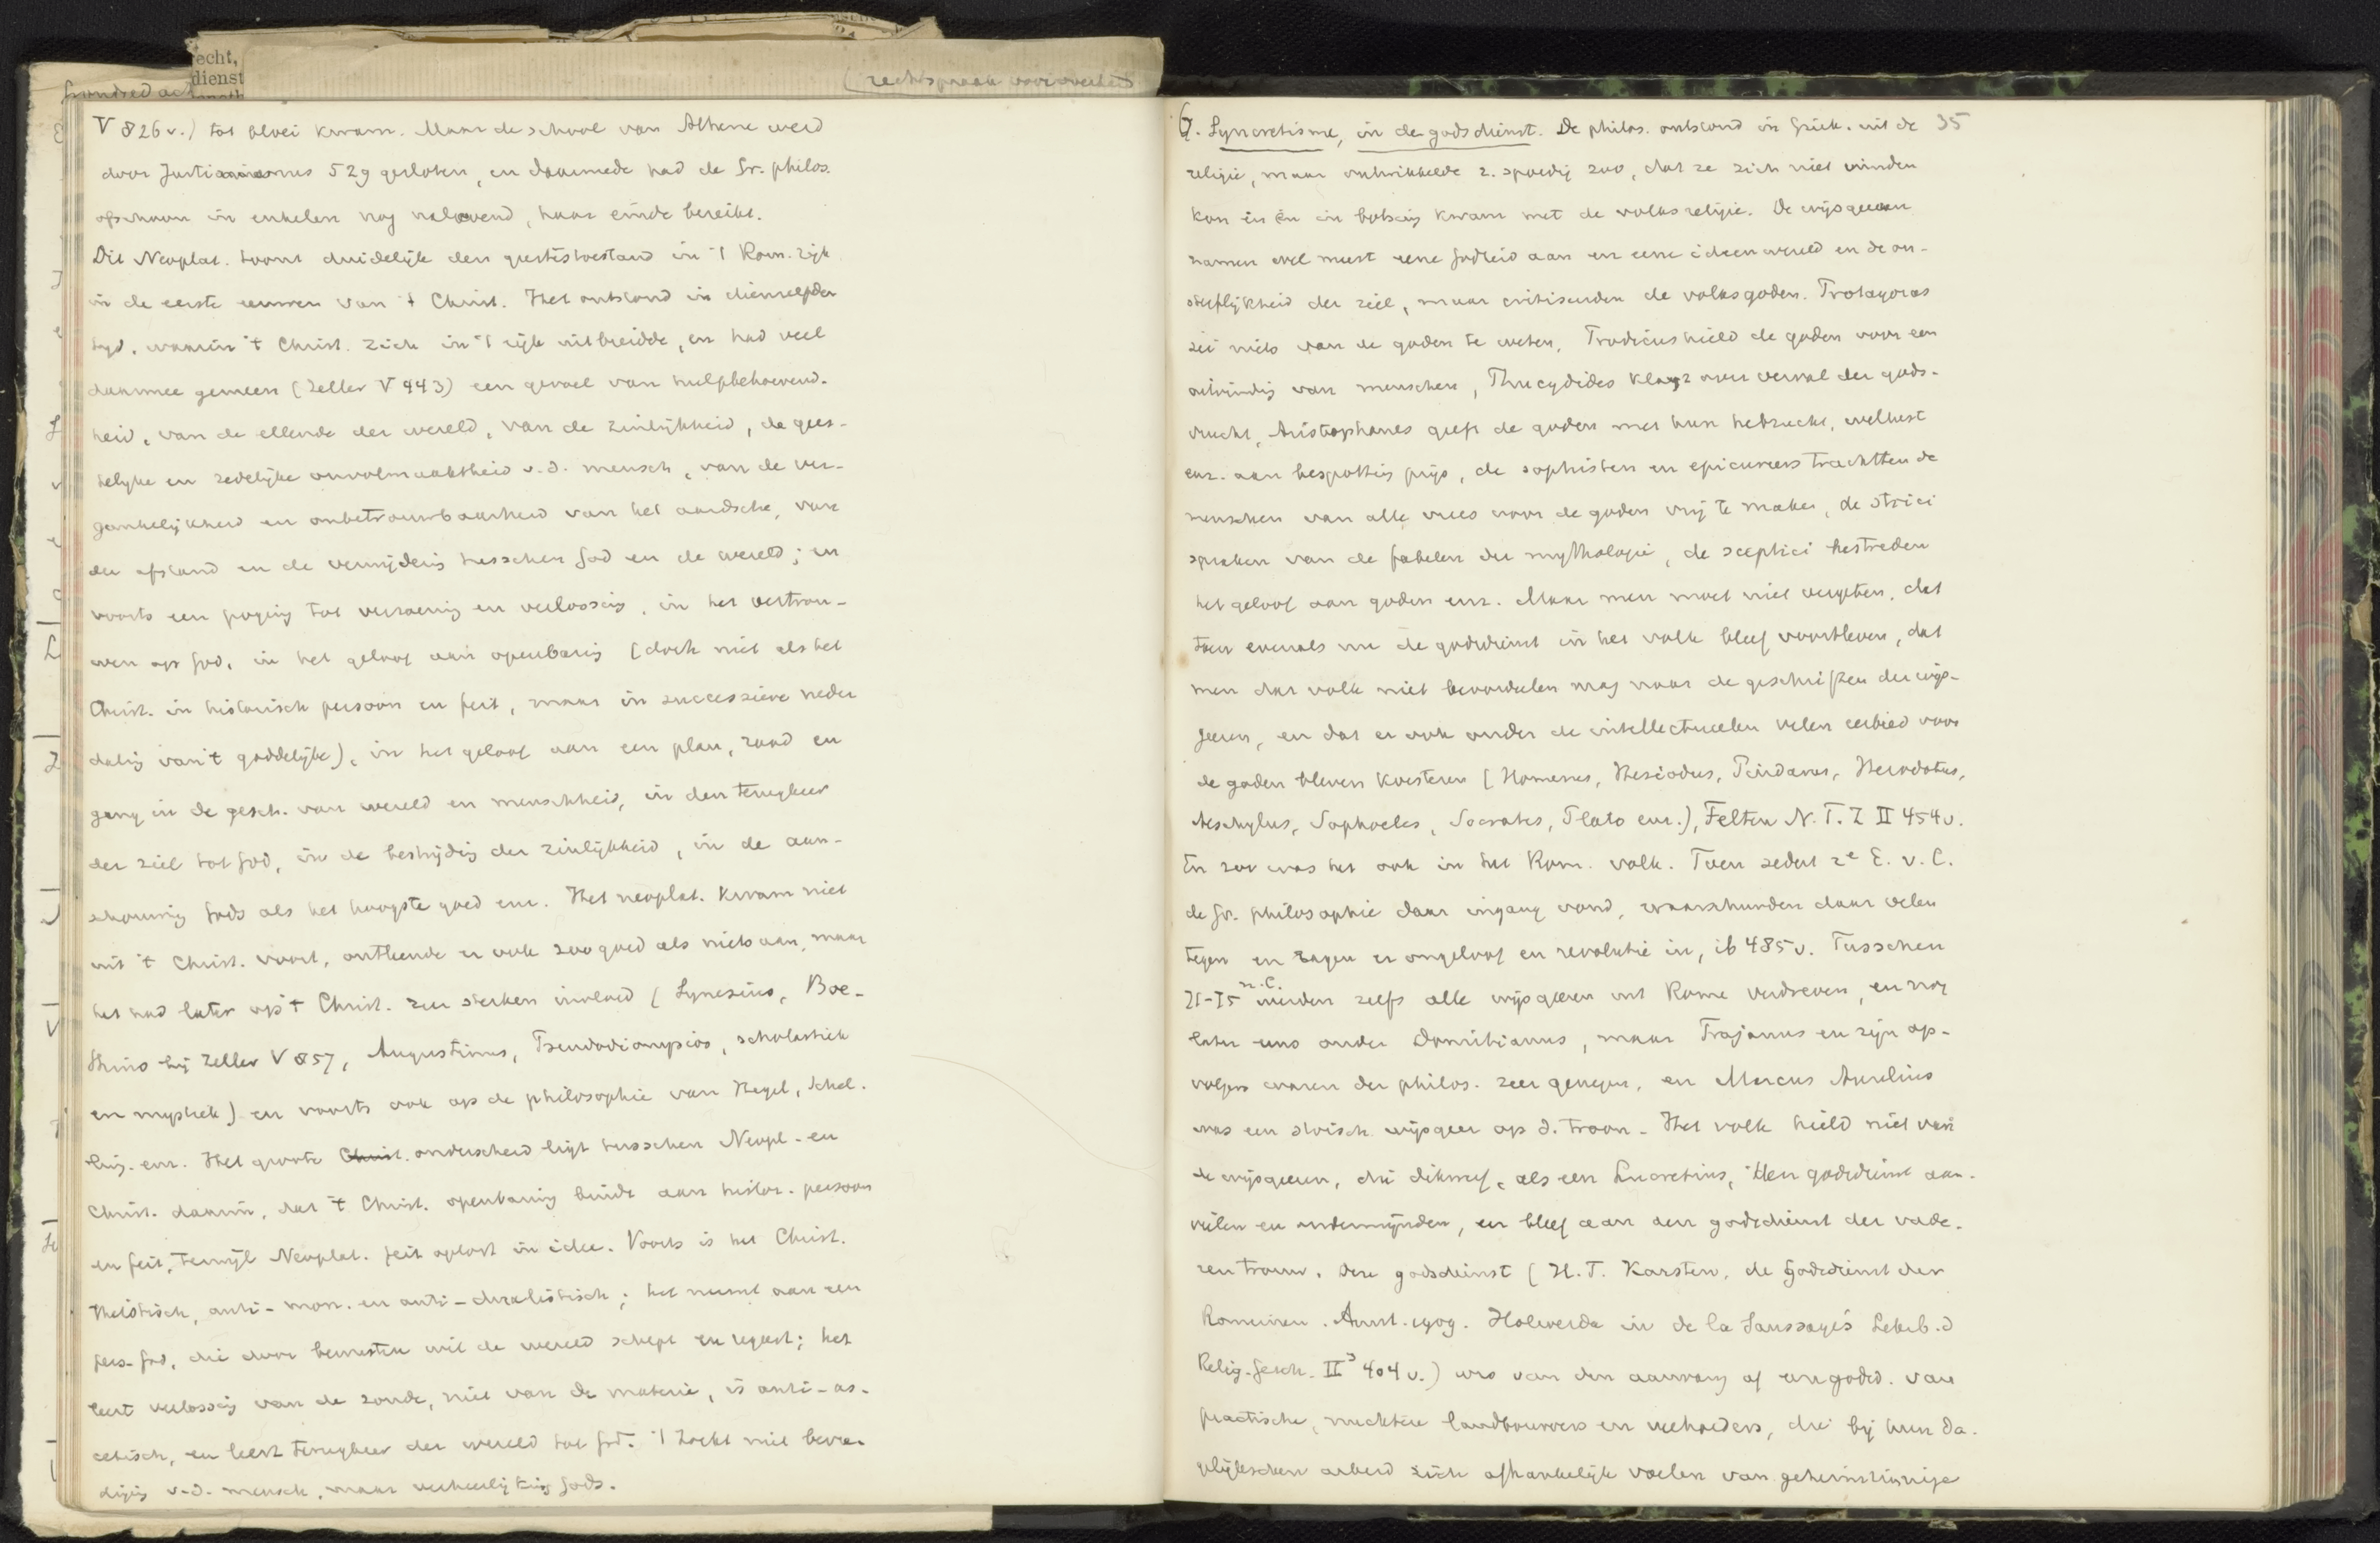 echt,
dienst
(rechtspraak voor overheid
V 826 v.) tot bloei kwam. Maar de school van Athene werd
door Justinianus 529 gesloten, en daarmede had de Gr. philos.
ofschoon in enkelen nog nalevend, haar einde bereikt.
Dit Neoplat. toont duidelijk den geestestoestand in 't Rom. rijk
in de eerste eeuwen van 't Christ. Het ontstond in dienzelfden
tijd, waarin 't Christ. zich in 't rijk uitbreidde, en had veel
daarmee gemeen (Zeller V 443) een gevoel van hulpbehoevend-
heid, van de ellende der wereld, van de zinlijkheid, de gees-
telijke en zedelijke onvolmaaktheid v.d. mensch, van de ver-
gankelijkheid en onbetrouwbaarheid van het aardsche, van
den afstand en de verwijdering tusschen God en de wereld; en
voorts een poging tot verzoening en verlossing, in het vertrou-
wen op God, in het geloof aan openbaring (doch niet als het
Christ. in historisch persoon en feit, maar in successieve neder
daling van 't goddelijke), in het geloof aan een plan, raad en
gang in de gesch. van wereld en menschheid, in den terugkeer
der ziel tot God, in de bestrijding der zinlijkheid, in de aan-
schouwing Gods als het hoogste goed enz. Het neoplat. kwam niet
uit 't Christ. voort, ontleende er ook zoo goed als niets aan, maar
het had later op 't Christ. zeer sterken invloed (Synesius, Boe-
thius bij Zeller V 857, Augustinus, Pseudodionysios, scholastiek
en mystiek) en voorts ook op de philosophie van Hegel, Schel-
ling enz. Het groote Christ. onderscheid ligt tusschen Neopl. en
Christ. daarin, dat 't Christ. openbaring bindt aan histor. persoon
en feit, terwijl Neoplat. feit oplost in idee. Voorts is het Christ.
theistisch, anti-mon. en anti-dualistisch; het neemt aan een
pers. God, die door bewusten wil de wereld schept en regeert; het
leert verlossing van de zonde, niet van de materie, is anti-as-
cetisch, en leert terugkeer der wereld tot God. 't Zoekt niet bevre-
diging v.d. mensch, maar verheerlijking Gods.
G. Syncretisme, in de godsdienst. De philos. ontstond in Griek. uit de 35
religie, maar ontwikkelde z. spoedig zoo, dat ze zich niet vinden
kon in en in botsing kwam met de volksreligie. De wijsgeeren
namen wel meest eene Godheid aan en eene ideenwereld en de on-
sterflijkheid der ziel, maar critiseerden de volksgoden. Protagoras
zei niets van de goden te weten, Prodicus hield de goden voor een
uitvinding van menschen, Thucydides klaagt over verval der gods-
vrucht, Aristophanes geeft de goden met hun hebzucht, wellust
enz. aan bespotting prijs, de sophisten en epicureers trachtten de
menschen van alle vrees voor de goden vrij te maken, de stoici
spraken van de fabelen der mythologie, de sceptici bestreden
het geloof aan goden enz. Maar men moet niet vergeten, dat
toen evenals nu de godsdienst in het volk bleef voortleven, dat
men dat volk niet beoordeelen mag naar de geschriften der wijs-
geeren, en dat er ook onder de intellectueelen velen eerbied voor
de goden bleven koesteren (Homerus, Hesiodus, Pindarus, Herodotus,
Aeschylus, Sophocles, Socrates, Plato enz.), Felten N.T.Z II 454 v.
En zoo was het ook in het Rom. volk. Toen sedert 2e E. v. C.
de Gr. philosophie daar ingang vond, waarschuwden daar velen
tegen en zagen er ongeloof en revolutie in, ib 485 v. Tusschen
71-75 n.C. werden zelfs alle wijsgeeren uit Rome verdreven, en nog
later eens onder Domitianus, maar Trajanus en zijn op-
volgers waren der philos. zeer genegen, en Marcus Aurelius
was een stoisch wijsgeer op d. troon. Het volk hield niet van
de wijsgeeren, die dikwijls, als een Lucretius, den godsdienst aan-
vielen en ondermijnden, en bleef aan den godsdienst der vade-
ren trouw. Deze godsdienst (H.T. Karsten, de Godsdienst der
Romeinen. Amst. 1909. Holwerda in de la Saussaye's Lehrb. d
Relig.gesch. II³ 404 v.) was van den aanvang af een godsd. van
practische, nuchtere landbouwers en veehoeders, die bij hun da-
gelijkschen arbeid zich afhankelijk voelen van geheimzinnige